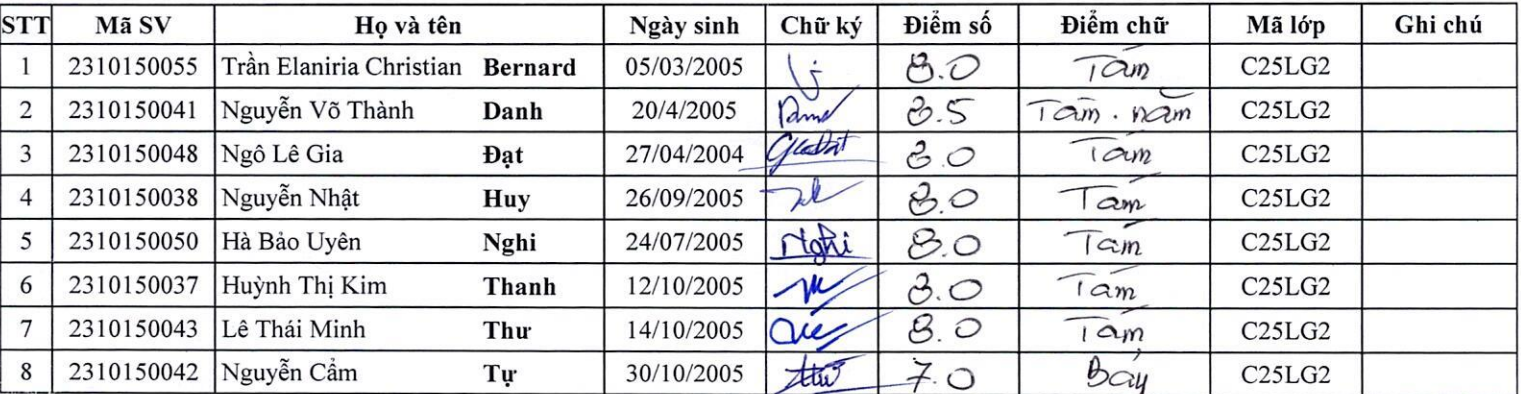 STT Mã SV Họ và tên Ngày sinh Chữ ký Điểm số Điểm chữ Mã lớp Ghi chú
1 2310150055 Trần Elaniria Christian Bernard 05/03/2005 8.0 Tám C25LG2
2 2310150041 Nguyễn Võ Thành Danh 20/4/2005 8.5 Tám . năm C25LG2
3 2310150048 Ngô Lê Gia Đạt 27/04/2004 8.0 Tám C25LG2
4 2310150038 Nguyễn Nhật Huy 26/09/2005 8.0 Tám C25LG2
5 2310150050 Hà Bảo Uyên Nghi 24/07/2005 Nghi 8.0 Tám C25LG2
6 2310150037 Huỳnh Thị Kim Thanh 12/10/2005 8.0 Tám C25LG2
7 2310150043 Lê Thái Minh Thư 14/10/2005 8.0 Tám C25LG2
8 2310150042 Nguyễn Cẩm Tự 30/10/2005 7.0 Bảy C25LG2